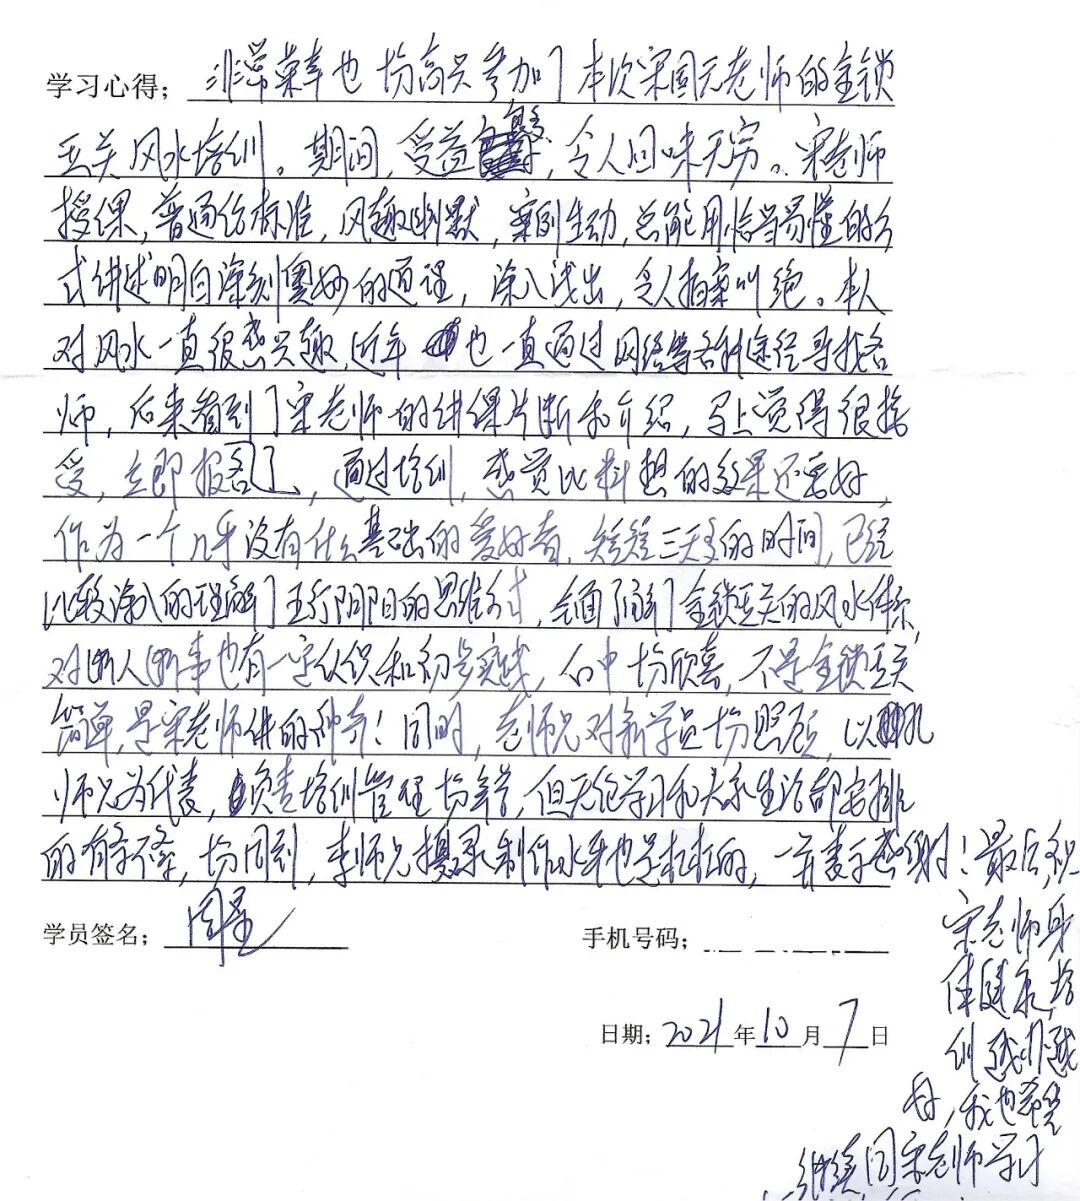 学习心得；非常荣幸也均高兴参加了本次宋国元老师的金锁
玉关风水培训。期间，受益良多，令人回味无穷。宋老师
授课，普通话标准，风趣幽默，案例生动，总能用恰当易懂的方
式讲述明白深刻奥妙的道理，深入浅出，令人拍案叫绝。本人
对风水一直很感兴趣，近年也一直通过网络等各种途径寻找名
师，后来看到了宋老师的讲课片断和介绍，马上觉得很接
受，立即报名了，通过培训，感觉比料想的效果还要好，
作为一个几乎没有什么基础的爱好者，短短三天多的时间，已经
比较深入的理解了五行阴阳的思维方式，全面了解了金锁玉关的风水体系，
对断人断事也有一定认识和初步实践，心中均欣喜，不是金锁玉关
简单，是宋老师讲的神奇！同时，老师兄对新学员均照顾，以孔
师兄为代表，负责培训管理均辛苦，但无论学习和大家生活都安排
的有条不紊，均周到，李师兄摄录制作水平也是杠杠的，一并表示感谢！最后，祝
宋老师身
体健康，培
训越办越
好，我也希望
继续同宋老师学习
学员签名；周星
手机号码；
日期；2021年10月7日